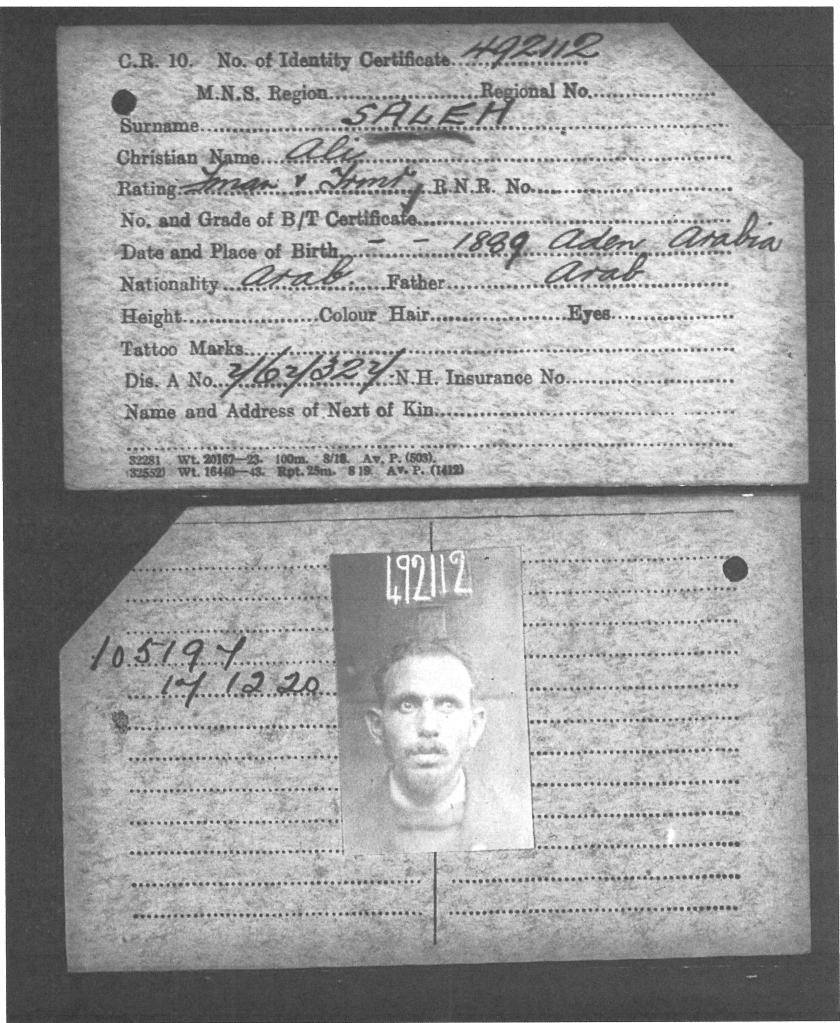 C.R. 10. No. of Identity Certificate 492112
M.N.S. Region Regional No.
Surname SALEH
Christian Name Ali
Rating Fman & Trmr R.N.R. No.
No. and Grade of B/T Certificate
Date and Place of Birth - - 1889 Aden Arabia
Nationality Arab. Father Arab
Height Colour Hair Eyes
Tattoo Marks
Dis. A No. :N.H. Insurance No.
Name and Address of Next of Kin
32281 Wt. 20167—23. 100m. 8/18. Av. P. (503).
(32552) Wt. 16440—43. Rpt. 25m. 8 19. Av. P. (1412)
492112
105197
17 12 20